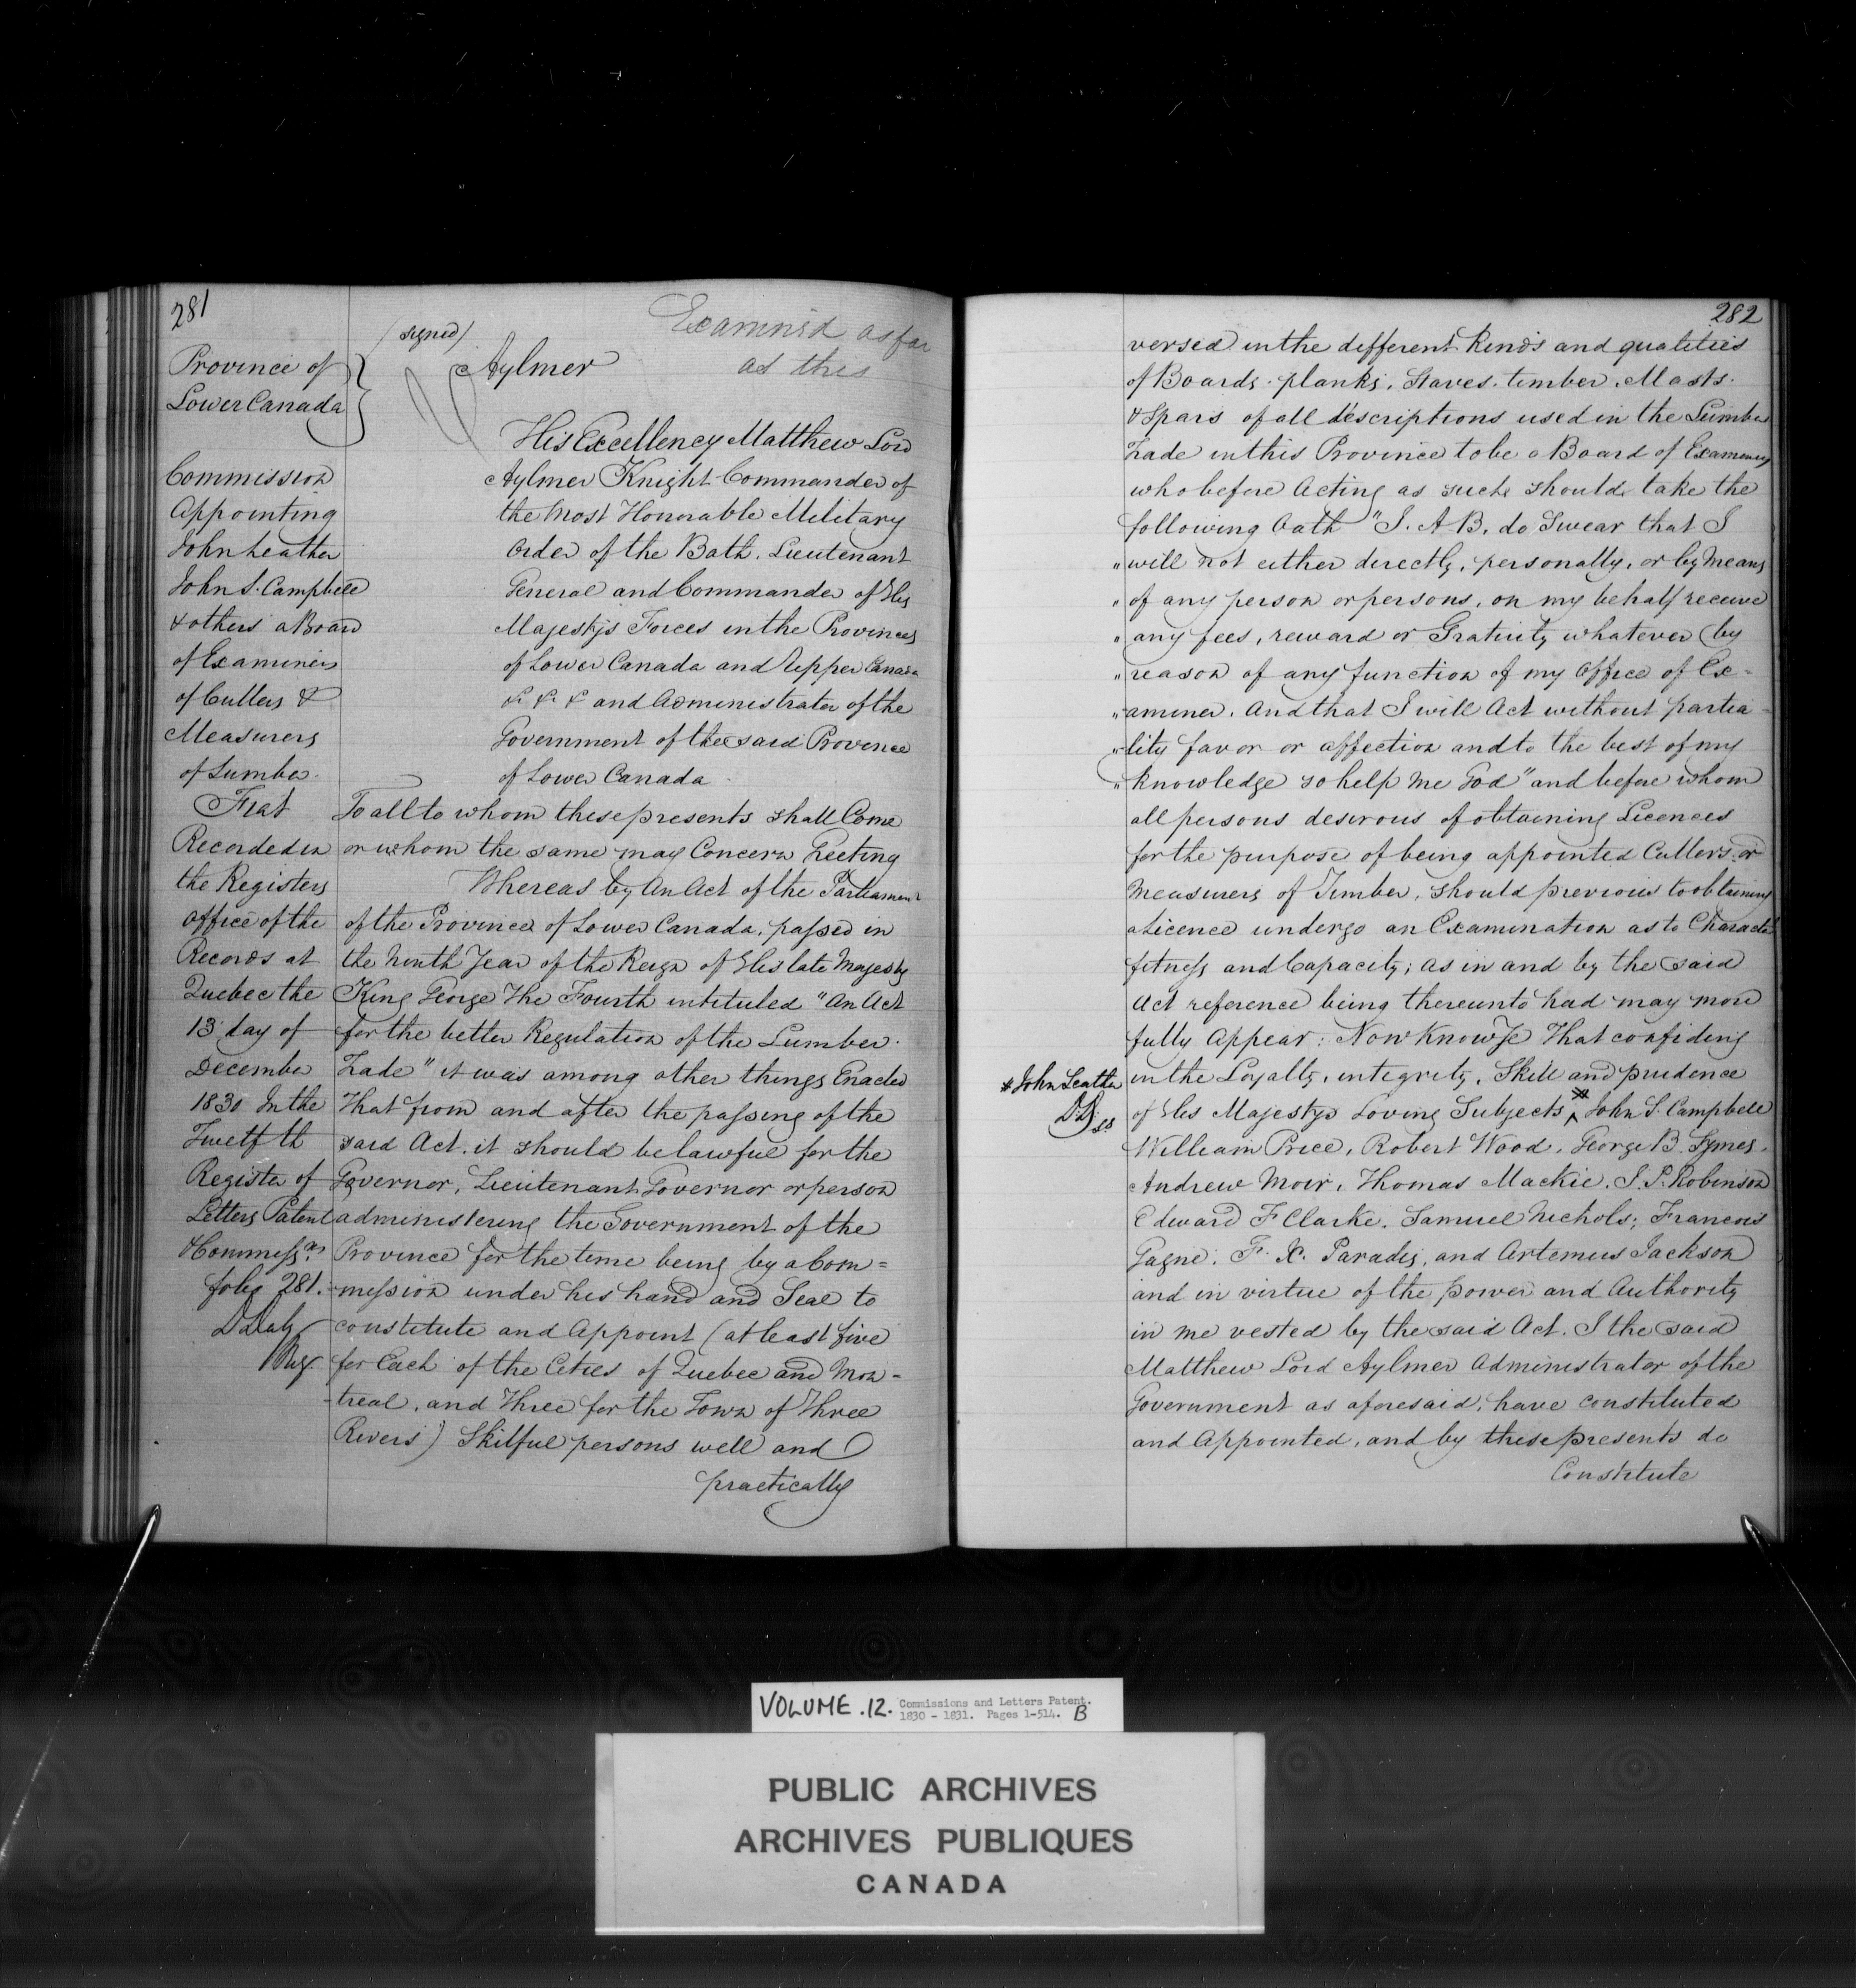 281
Examined as far
as this
(signed)
Aylmer
Province of
Lower Canada
Commission
Appointing
John Leather
John S. Campbell
& others a Board
of Examiners
of Cullers &
Measurers
of Lumber.
Fiat
Recorded in
the Registers
office of the
Records at
Quebec the
13 day of
December
1830 In the
Twelfth
Register of
Letters Patent
& Commissns
folio 281.
D Daly
Reg.
His Excellency Matthew Lord
Aylmer Knight Commander of
the Most Honorable Military
Order of the Bath, Lieutenant
General and Commander of His
Majesty's Forces in the Provinces
of Lower Canada and Upper Canada
&. &. & and Administrator of the
Government of the said Province
of Lower Canada
To all to whom these presents shall Come
or whom the same may Concern Greeting
Whereas by An Act of the Parliament
of the Province of Lower Canada, passed in
the Ninth Year of the Reign of His late Majesty
King George The Fourth intituled "An Act
for the better Regulation of the Lumber
Trade" it was among other things Enacted
That from and after the passing of the
said Act, it should be lawful for the
Governor, Lieutenant Governor or person
administering the Government of the
Province for the time being by a Com=
-mission under his hand and Seal to
constitute and Appoint (at least five
for Each of the Cities of Quebec and Mon-
-treal, and Three for the Town of Three
Rivers) Skilful persons well and
practically
282
versed in the different Kinds and qualities
of Boards. planks, Staves. timber. Masts.
& Spars of all descriptions used in the Lumber
Trade in this Province to be a Board of Examiners
who before Acting as such should take the
following Oath "I. A B. do Swear that I
" will not either directly, personally, or by Means
" of any person or persons, on my behalf receive
" any fees, reward or Gratuity whatever by
" reason of any function of my Office of Ex-
" aminer. And that I will Act without partia-
" lity favor or affection and to the best of my
" knowledge so help me God" and before whom
all persons desirous of obtaining Licences
for the purpose of being appointed Cullers or
Measurers of Timber, should previous to obtaining
a Licence undergo an Examination as to Character
fitness and Capacity; as in and by the said
Act reference being thereunto had may more
fully Appear: Now Know Ye That confiding
in the Loyalty, integrity, Skill and prudence
* John Leather
DD
of His Majesty's Loving Subjects * John S. Campbell
William Price, Robert Wood, George B Symes.
Andrew Moir, Thomas Mackie, S. P. Robinson
Edward F Clarke. Samuel Nichols; Francois
Gagné. F. X. Paradis, and Artemus Jackson
and in virtue of the power and Authority
in me vested by the said Act. I the said
Matthew Lord Aylmer Administrator of the
Government as aforesaid, have constituted
and Appointed, and by these presents do
Constitute
VOLUME.12. Commissions and Letters Patent.
1830 - 1831. Pages 1-514. B
PUBLIC ARCHIVES
ARCHIVES PUBLIQUES
CANADA